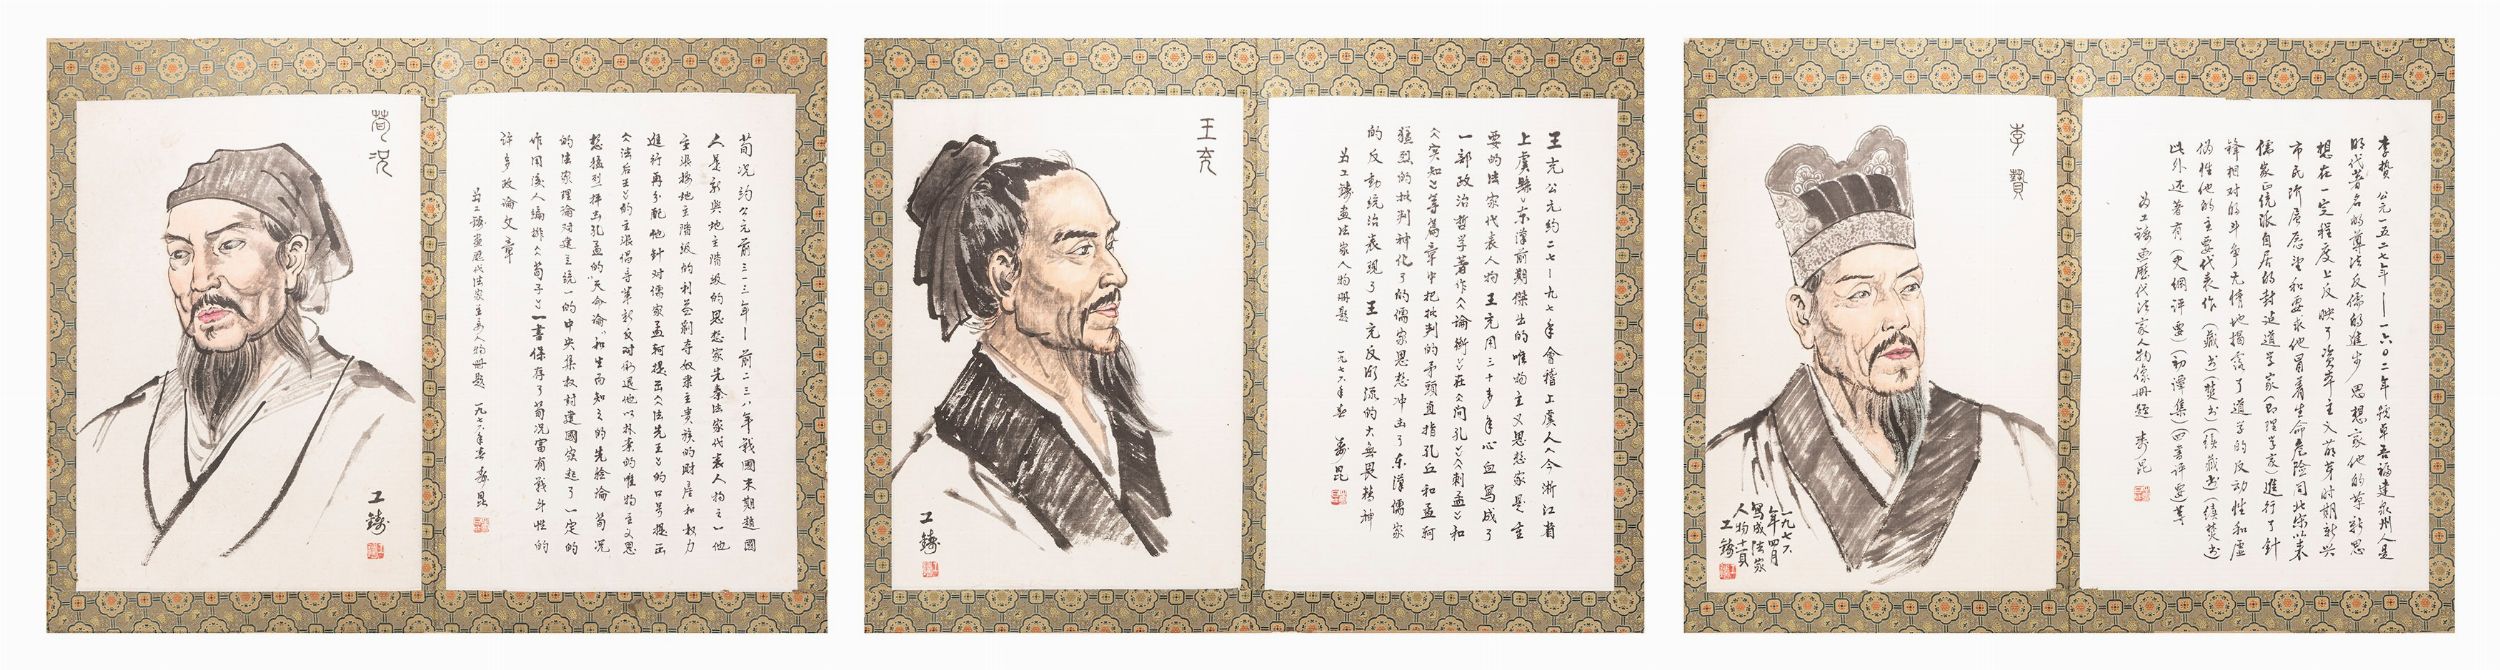 荀况
工鑄
荀况约公元前三一三年——前二三八年戰國末期趙國
人是新興地主階級的思想家先秦法家代表人物之一他
主張按地主階級的利益剝夺奴隶主贵族的财产和权力
進行再分配他針对儒家孟軻提出《法先王》的口号提出
《法后王》的主張倡导革新反对倒退他以朴素的唯物主义思
想猛烈抨击孔孟的“天命論”和生而知之的先验論荀况
的法家理論对建立統一的中央集权封建國家起了一定的
作用後人编排《荀子》一書保存了荀况富有戰斗性的
許多政論文章
为工鑄畫歷代法家主要人物册题 一九七六年春 壽昆
王充
工鑄
王充公元约二七—九七年會稽上虞人《今浙江省
上虞縣》东漢前期傑出的唯物主义思想家是主
要的法家代表人物王充用三十多年心血写成了
一部政治哲学著作《論衡》在《问孔》《刺孟》和
《实知》等篇章中把批判的矛头直指孔丘和孟軻
猛烈的批判神化了的儒家思想冲击了东漢儒家
的反動統治表現了王充反潮流的大無畏精神
为工鑄畫法家人物册题 一九七六年春 壽昆
李贄
一九七六
年四月
寫成法家
人物十二頁
工鑄
李贄 公元一五二七年——一六〇二年號卓吾福建泉州人是
明代著名的尊法反儒的進步思想家他的革新思
想在一定程度上反映了资本主义萌芽时期新兴
市民阶层愿望和要求他冒着生命危险同北宋以来
儒家正统派自居的封建道学家(即理学家)進行了針
锋相对的斗争无情地揭露了道学的反动性和虚
伪性他的主要代表作(藏书)(焚书)(续藏书)(续焚书)
此外还著有(史綱评要)(初潭集)(四書评要)等
为工鑄画歷代法家人物像册题 壽昆